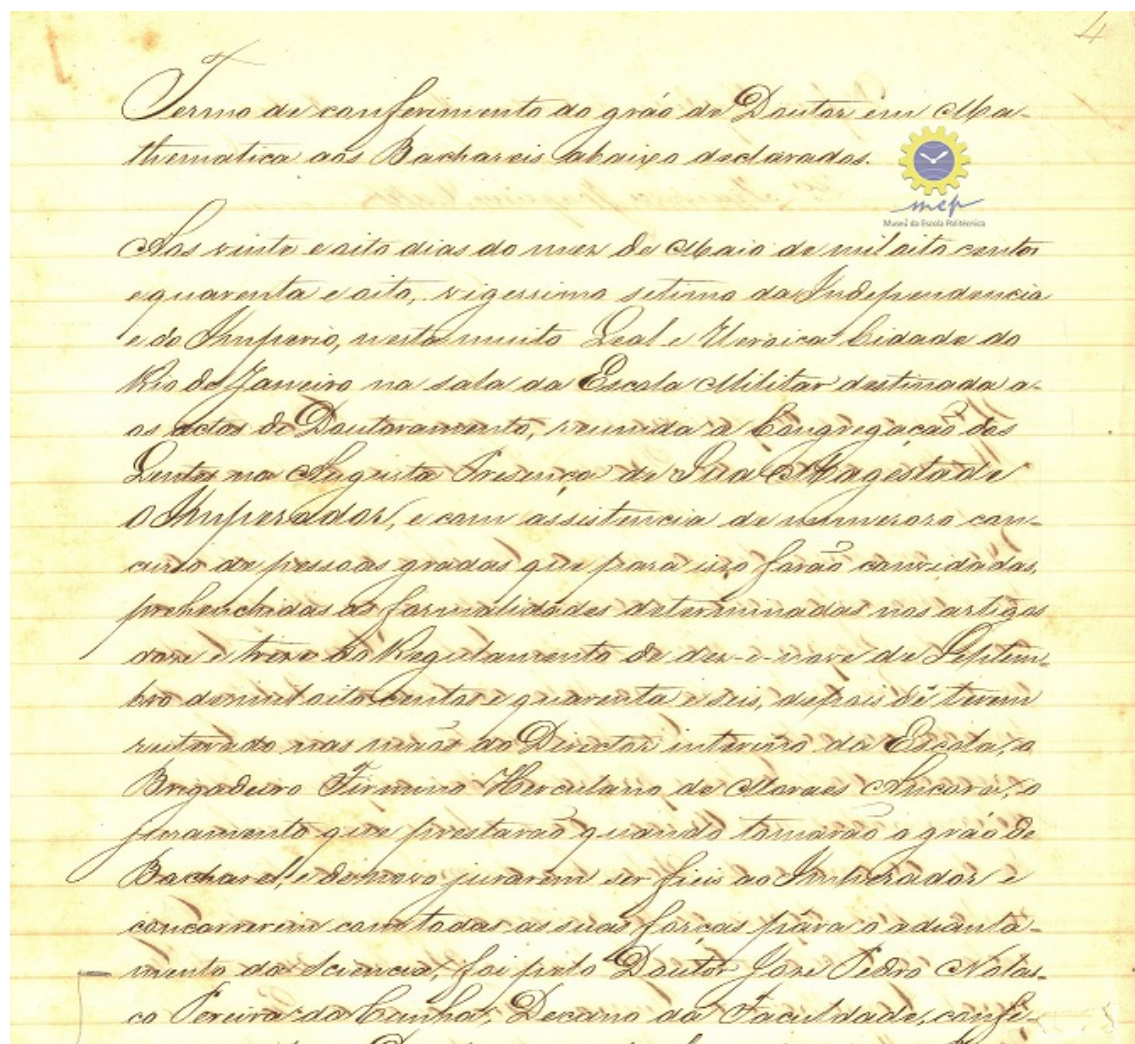 4
Termo de conferimento do gráo de Doutor em Ma-
thematica aos Bachareis abaixo declarados.
mep
Museu da Escola Politécnica
Aos vinte e oito dias do mez de Maio de mil oito centos
e quarenta e oito, vigessimo setimo da Independencia
e do Imperio, nesta muito Leal e Heroica Cidade do
Rio de Janeiro na sala da Escola Militar destinada a-
os actos de Doutoramento, reunida a Congregação dos
Lentes na Augusta Presença de Sua Magestade
O Imperador, e com assistencia de numeroso con-
curso de pessoas gradas que para isso forão convidadas,
prehenchidas as formalidades determinadas nos artigos
doze e treze do Regulamento de dez-e-nove de Septem-
bro de mil oito centos e quarenta e seis, depois de terem
reiterado nas mãos do Director interino da Escola, o
Brigadeiro Firmino Herculano de Moraes Ancora, o
juramento que prestarão quando tomarão o gráo de
Bacharel, e de novo jurarem ser fieis ao Imperador e
concorrerem com todas as suas forças para o adianta-
mento da Sciencia, foi pelo Doutor Jose Pedro Nolas-
co Pereira da Cunha, Decano da Faculdade, confe-